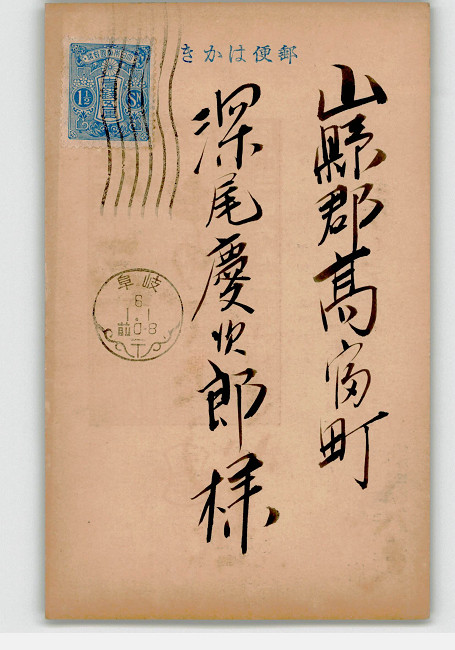 郵便はかき
山縣郡高富町
深尾慶次郎様
1½ Sn
岐阜
8
1.1
前0-8